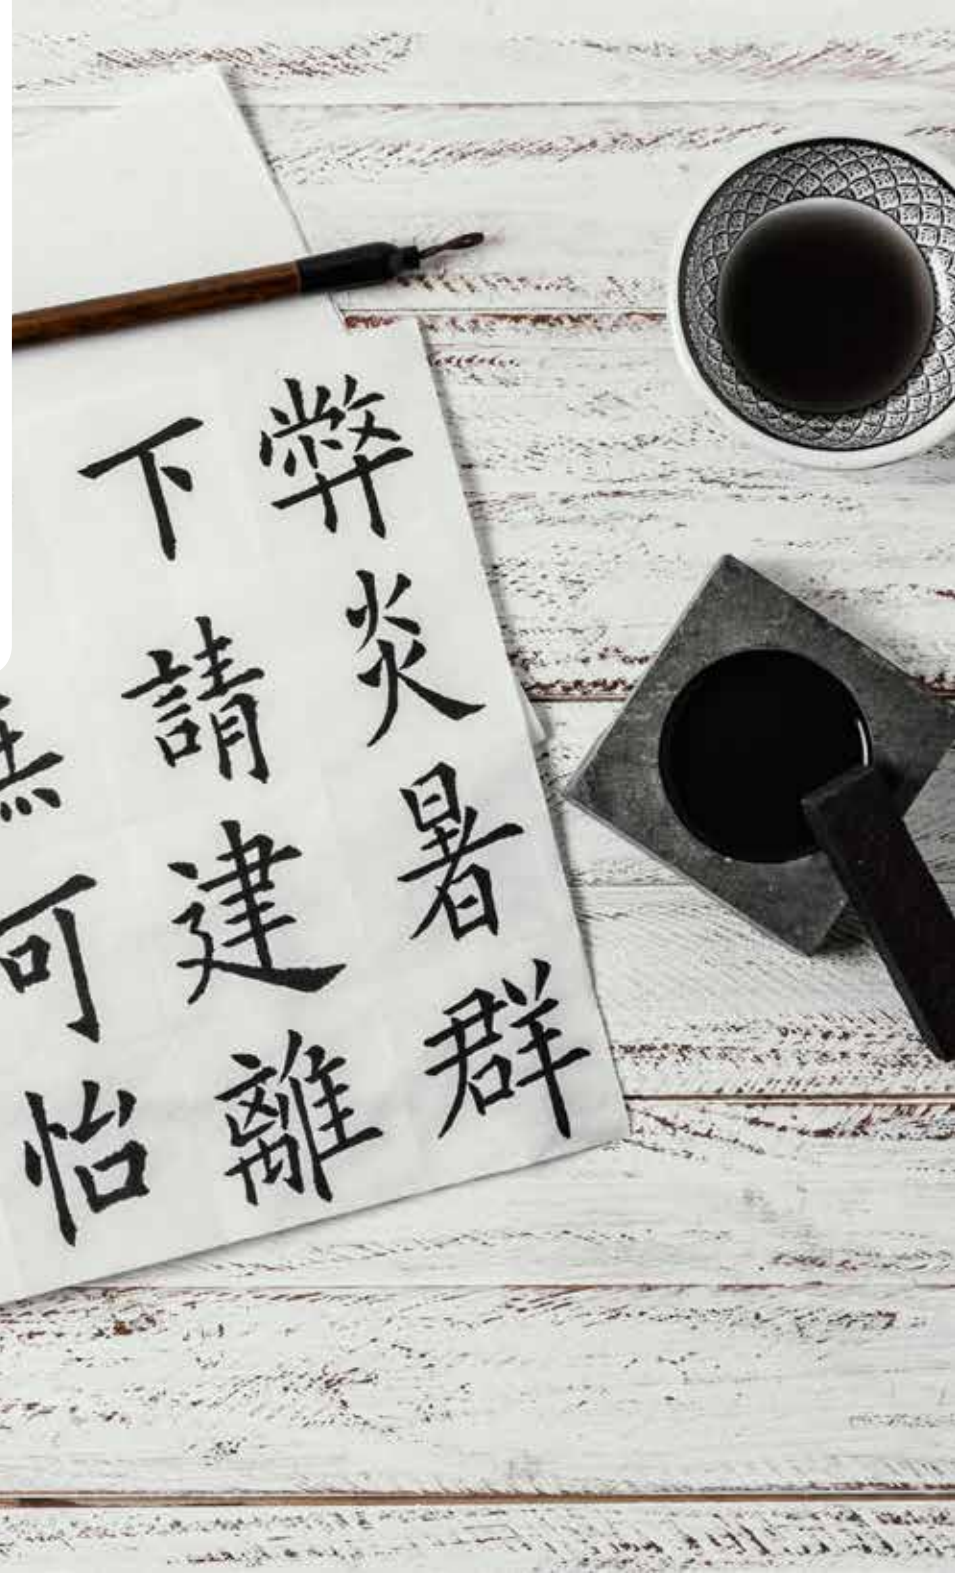 弊炎暑群
下請建離
無可怡